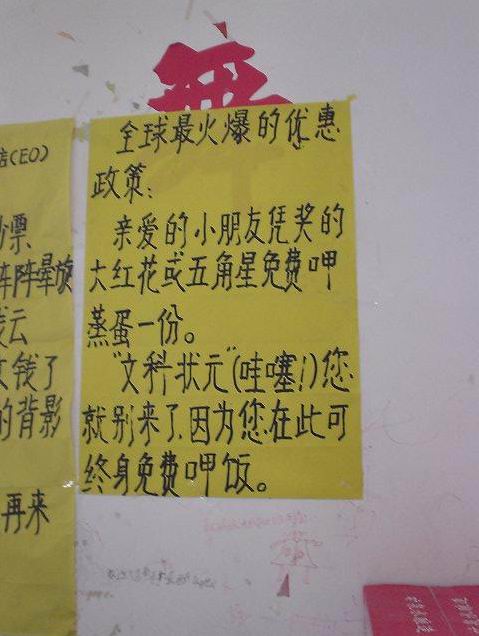 全球最火爆的优惠
政策:
亲爱的小朋友凭奖的
大红花或五角星免费呷
蒸蛋一份。
"文科状元"(哇噻!)您
就别来了.因为您在此可
终身免费呷饭。
店(CEO)
钞票
阵阵晕旋
钱云
钱了
的背影
再来